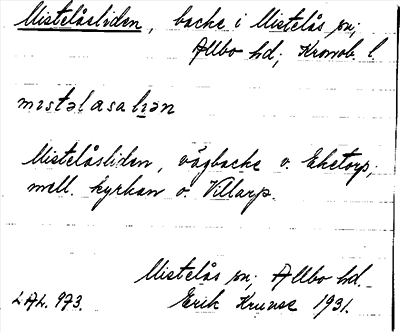 Mistelåsliden, backe i Mistelås sn;
Allbo hd; Kronob. l.
mɪstəlasaliən
Mistelåsliden, vägbacke v. Eketorp;
mell. kyrkan o. Villarp.
Mistelås sn; Allbo hd.
LAL. 973. Erik Kruuse 1931.